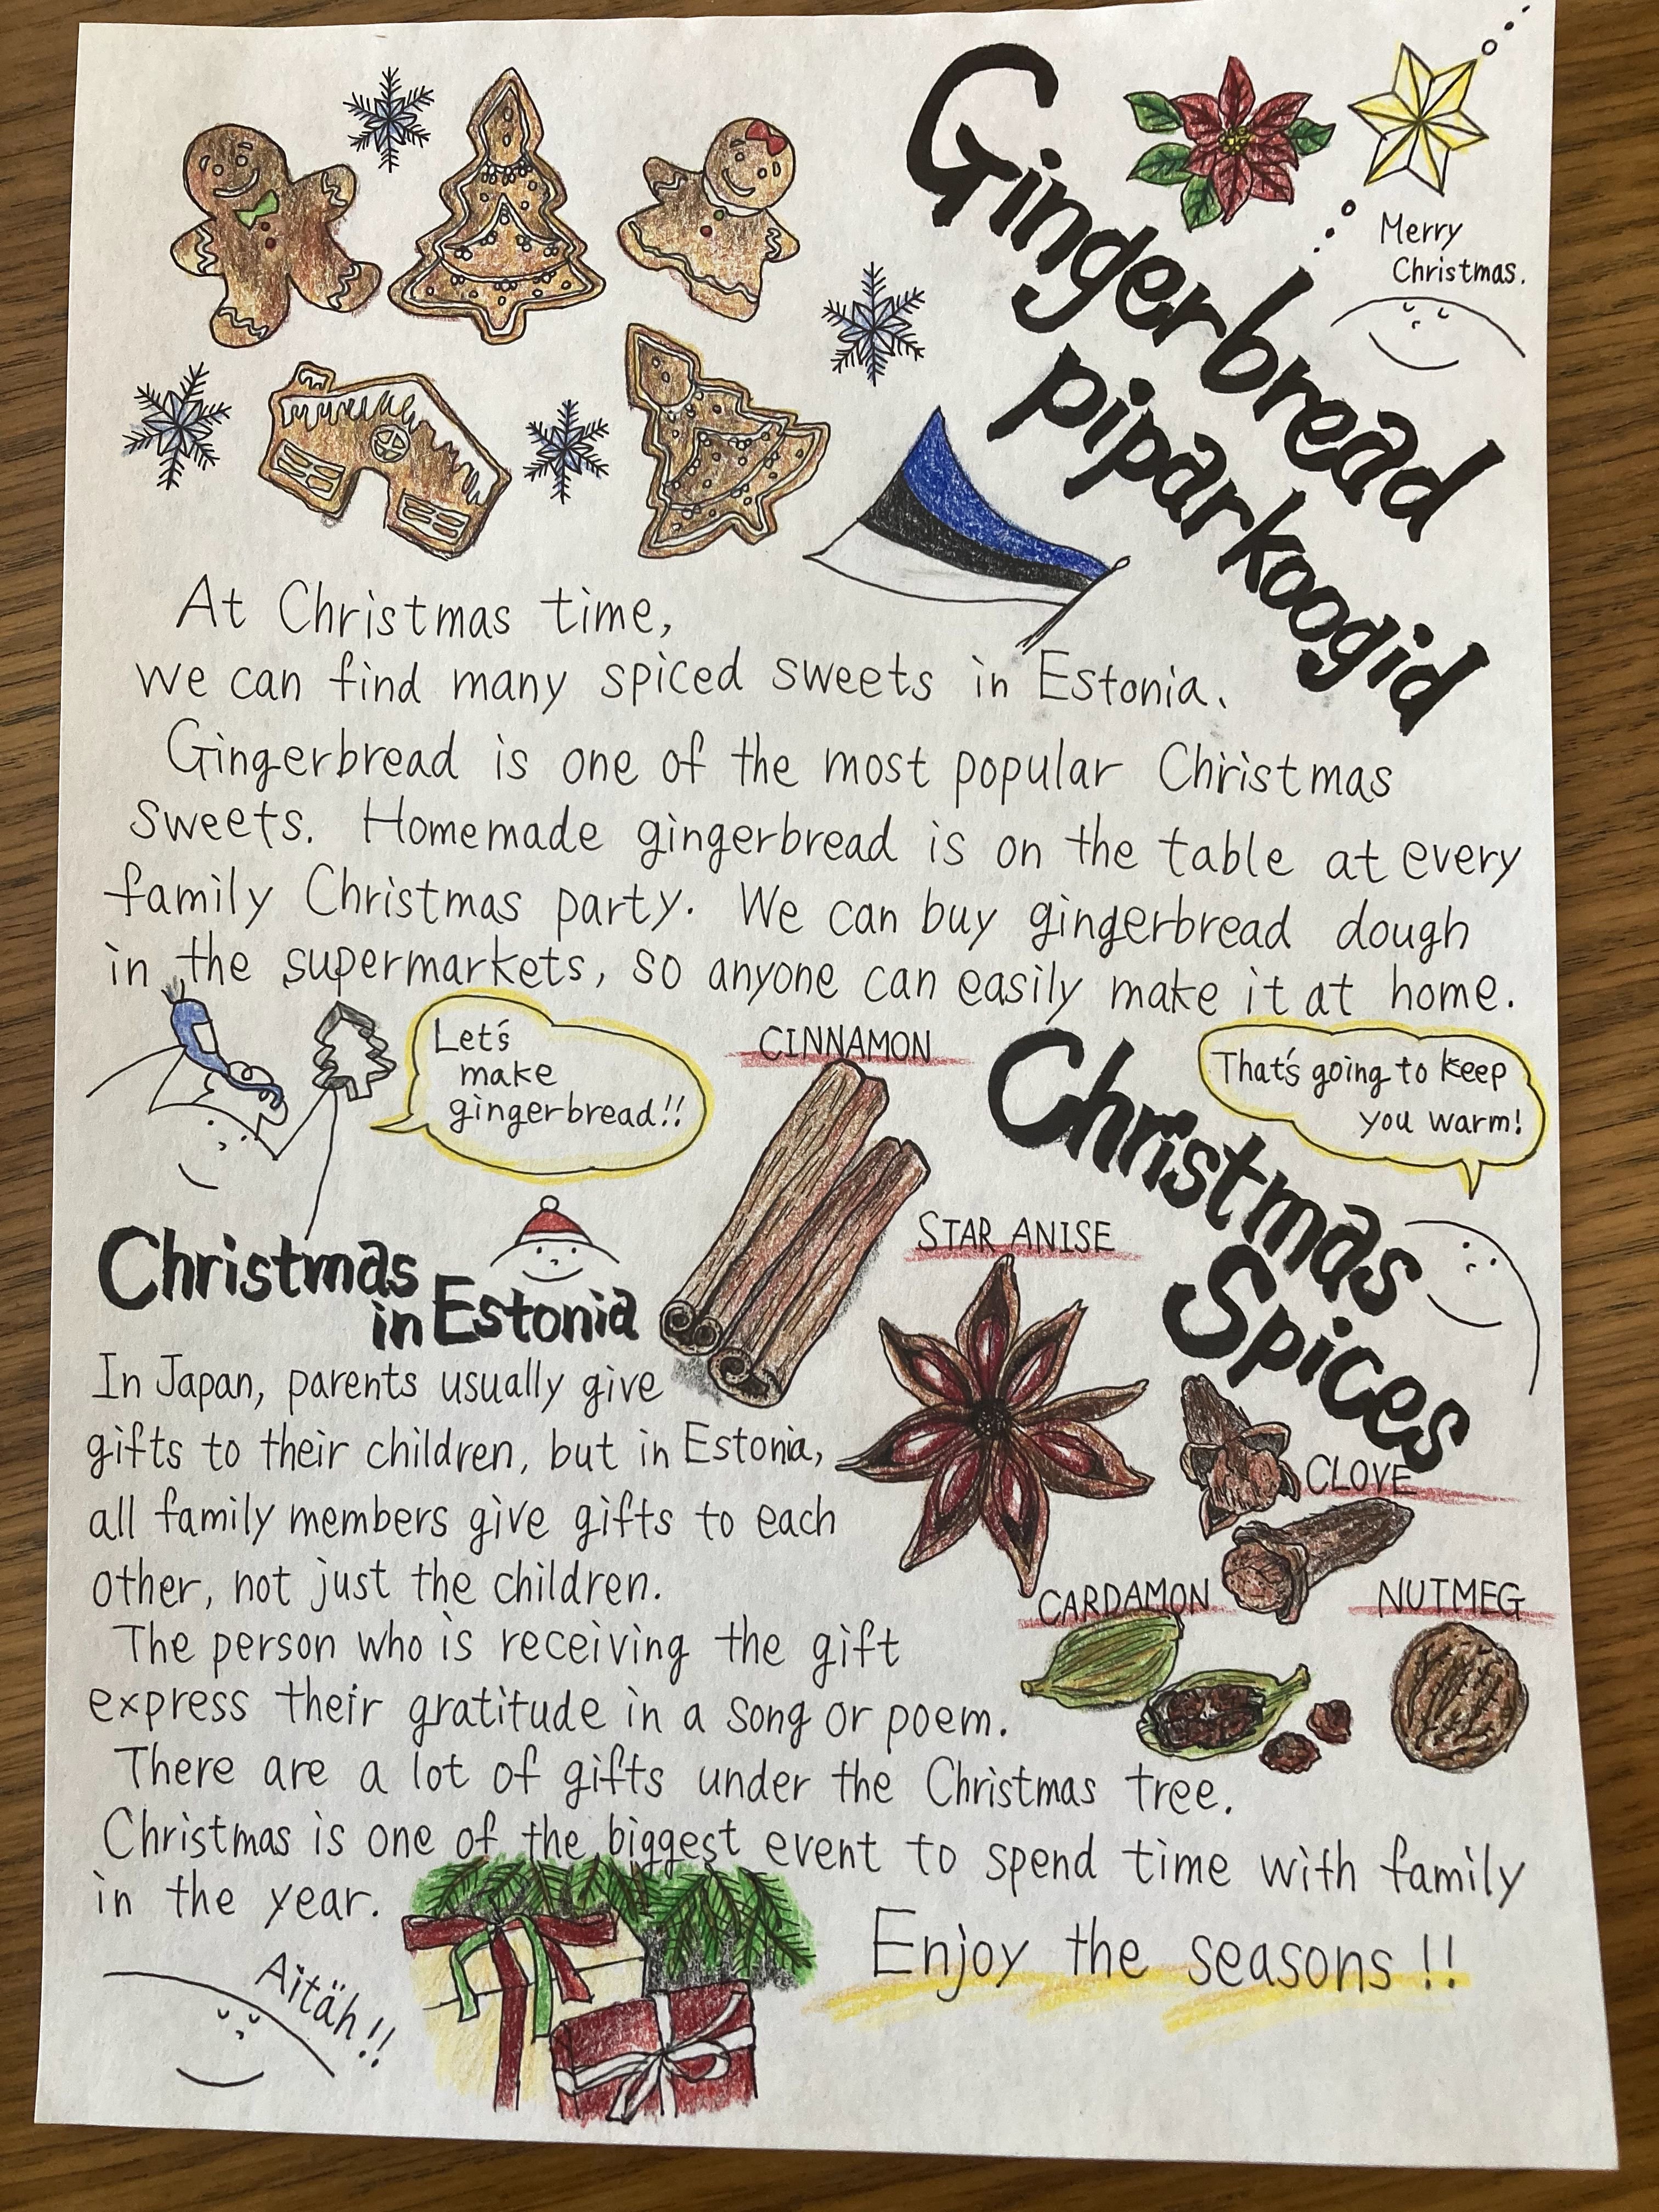 Gingerbread
piparkoogid
Merry
Christmas.
At Christmas time,
we can find many spiced sweets in Estonia.
Gingerbread is one of the most popular Christmas
sweets. Homemade gingerbread is on the table at every
family Christmas party. We can buy gingerbread dough
in the supermarkets, so anyone can easily make it at home.
Let's
make
gingerbread!!
CINNAMON
Christmas
Spices
That's going to keep
you warm!
STAR ANISE
CLOVE
CARDAMON
NUTMEG
Christmas
in Estonia
In Japan, parents usually give
gifts to their children, but in Estonia,
all family members give gifts to each
other, not just the children.
The person who is receiving the gift
express their gratitude in a song or poem.
There are a lot of gifts under the Christmas tree.
Christmas is one of the biggest event to spend time with family
in the year.
Enjoy the seasons!!
Aitäh!!